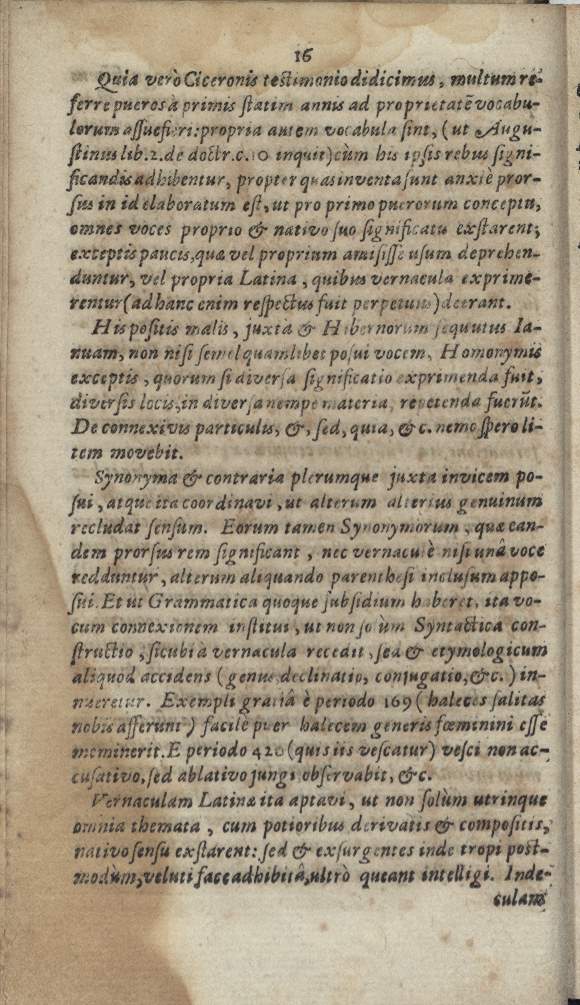 16
Quia verò Ciceronis testimonio didicimus, multum re-
ferre pueros à primis statim annis ad proprietatē vocabu-
lorum assuefieri: propria autem vocabula sint, (ut Augu-
stinus lib. 2. de doctr. c. 10 inquit) cùm his ipsis rebus signi-
ficandis adhibentur, propter quas inventa sunt anxiè pror-
sus in id elaboratum est, ut pro primo puerorum conceptu,
omnes voces proprio & nativo suo significatu exstarent;
exceptis paucis, quæ vel proprium amisisse usum deprehen-
duntur, vel propria Latina, quibus vernacula exprime-
rentur (ad hanc enim respectus fuit perpetuus) deerant.
His positis malis, juxta & Hibernorum sequutus Ia-
nuam, non nisi semel quamlibet posui vocem, Homonymis
exceptis, quorum si diversa significatio exprimenda fuit,
diversis locis, in diversa nempe materia, repetenda fuerūt.
De connexivis particulis, &, sed, quia, &c. nemo spero li-
tem movebit.
Synonyma & contraria plerumque juxta invicem po-
sui, atque ita coordinavi, ut alterum alterius genuinum
recludat sensum. Eorum tamen Synonymorum, quæ ean-
dem prorsus rem significant, nec vernaculè nisi unâ voce
redduntur, alterum aliquando parenthesi inclusum appo-
sui. Et ut Grammatica quoque subsidium haberet, ita vo-
cum connexionem institui, ut non solùm Syntactica con-
structio, sicubi à vernacula recedit, sed & etymologicum
aliquod accidens (genus, declinatio, conjugatio, &c.) in-
nueretur. Exempli gratiâ è periodo 169 (haleces salitas
nobis afferunt) facilè puer halecem generis fœminini esse
meminerit. E periodo 420 (quis iis vescatur) vesci non ac-
cusativo, sed ablativo jungi observabit, &c.
Vernaculam Latinæ ita aptavi, ut non solùm utrinque
omnia themata, cum potioribus derivatis & compositis,
nativo sensu exstarent: sed & exsurgentes inde tropi post-
modùm, veluti face adhibitâ, ultrò queant intelligi. Inde-
culam